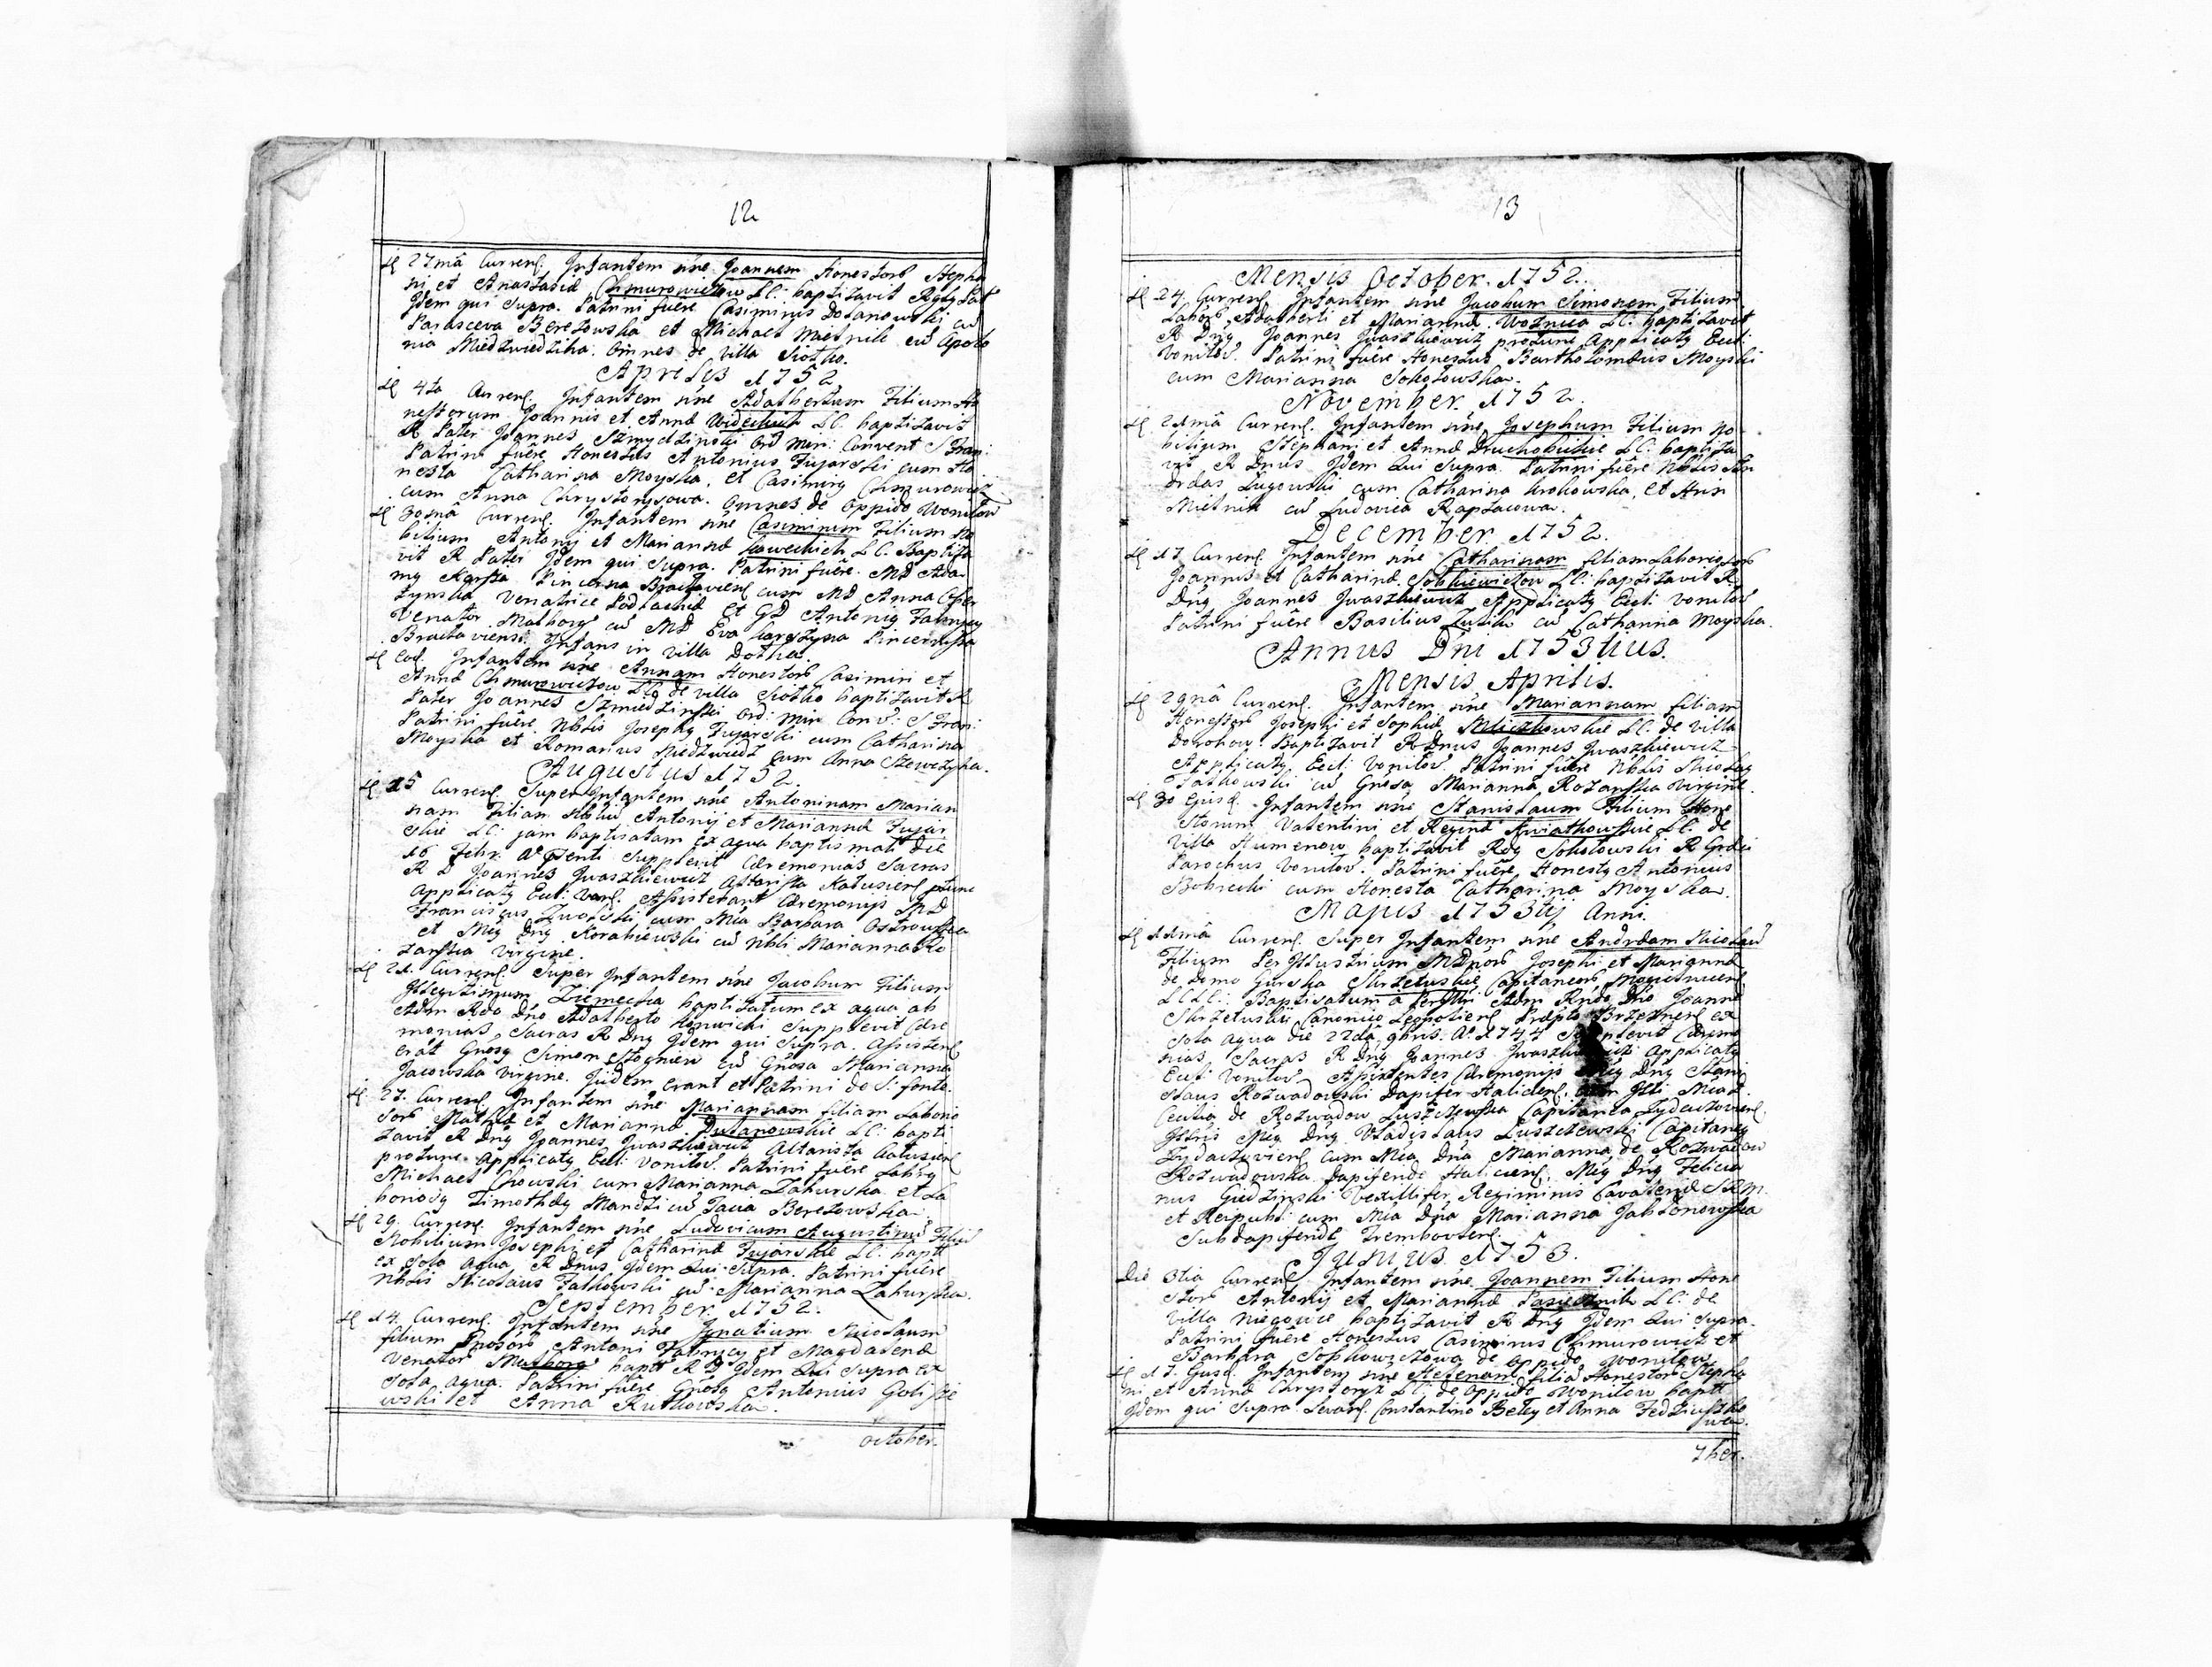 12
27mâ Curren. Infantem nne Joannem Honestorũ Stepha
ni et Anastasiæ Chmurowiczow LC: baptizavit Rgdg Pat
Idem qui Supra. Patrini fuêre Casimirus Dolanowski cũ
Parasceva Berezowska et Michael Mietnik cũ Apolo
nia Miedzwiedzika. Omnes de villa Siolko.
Aprilis 1752
4ta Curren. Infantem nne Adalbertum Filium Ho
nestorum Joannis et Annæ LC. baptizavit
R Pater Joannes Szmydzinski Ord Min: Convent S Fran:
Patrini fuêre Honestus Antonius Fujarski cum Ho
nesta Catharina Moyska, et Casimirg Chmurowicz
cum Anna Chrystorysowa. Omnes de Oppido Wonilow
30mâ Curren. Infantem nne Casimirum Filium No
bilium Antonij et Mariannæ LC. Baptiza
vit R Pater Idem qui Supra. Patrini fuêre. MD Ada
mg Karsza Pincerna Braclavien cum MD Anna
Venatrice Podlachiæ et GD Antonig
Venator cũ MD Eva Pincernissa
Braclaviensi. Infans in villa Dolha.
Eod. Infantem nne Annam Honestorũ Casimiri et
Annæ Chmurowiczow LC de villa Siolko baptizavit R
Pater Joannes Szmiedzinski Ord: Min Conv: S Fran:
Patrini fuêre Nblis Josephg Fujarski cum Catharina
Moyska et Romanus Niedzwiedz cum Anna Szewczyka.
Augustus 1752.
15 Curren. Super Infantem nne Antoninam Marian
nam Filiam Nbliũ Antonij et Mariannæ Fujar
skie LC: jam baptisatam ex aqua baptismali die
16 Febr. Aº psenti Supplevit Cæremonias Sacras
R D Joannes Jwaszkiewicz Altarista Kalusien ptunc
Applicatg Eccl: Assistebant Cæremonijs MD
Franciscus cum Mia Barbara Ostrowska
et Mfg Dng Korabiewski cũ Nbli Marianna Ro
zanska Virgine.
21. Curren. Super Infantem nne Jacobum Filium
Illegitimum Ziemecka baptizatum ex aqua ab
Adm Rdo Dno Adalberto Supplevit Cære
monias Sacras R Dng Idem qui Supra. Assisten
erat Gnosg Simon Stogniew cũ Gnosa Marianna
Jacowska Virgine. Iidem erant et Patrini de S: fonte.
27. Curren. Infantem nne Mariannam filiam Laborio
sorũ Mathiæ et Mariannæ Dulanowskie LC: bapti
zavit R Dng Joannes Jwaszkiewicz Altarista Kalusien
protunc Applicatg Eccl: Vonilov. Patrini fuêre Labrsg
Michael Chowski cum Marianna Zahurska et La
boriosg Timotheg Mandzi cũ Tacia Berezowska.
29. Curren. Infantem nne Ludovicum Augustinũ Filiũ
Nobilium Josephi et Catharinæ Fujarskie LC: baptt
ex sola aqua R Dnus Idem Qui Supra. Patrini fuêre
Nblis Nicolaus Falkowski cũ Marianna Zahurska.
September 1752.
14. Curren. Infantem nne Ignatium Nicolaum
filium Gnosorũ Antoni et Magdalenæ
Venator baptt R D Idem Qui Supra ex
sola aqua. Patrini fuêre Gnosg Antonius
wski et Anna Rutkowska.
October.
13
Mensis October. 1752.
24. Curren. Infantem nne Jacobum Simonem Filium
Laborũ Adalberti et Mariannæ Woznica LC: baptizavit
R Dng Joannes Jwaszkiewicz protunc Applicatg Eccl:
Vonilov. Patrini fuêre Honestus Bartholomæus Moyski
cum Marianna Sokolowska.
November. 1752.
21mâ Curren. Infantem nne Josephum Filium No
bilium Stephani et Annæ Druchobickie LC: baptiza
vit R Dnus Idem Qui Supra. Patrini fuêre Nblis An
dreas Lugowski cum Catharina Krokowska, et Hrin
Mietnik cũ Ludovica Raptacowa.
December. 1752.
17. Curren. Infantem nne Catharinam filiam Laboriosorũ
Joannis et Catharinæ Sobkiewiczow LC: baptizavit R
Dng Joannes Jwaszkiewicz Applicatg Eccl: Vonilov
Patrini fuêre Basilius cũ Catharina Moyska.
Annus Dni 1753tius.
Mensis Aprilis.
29nâ Curren. Infantem nne Mariannam filiam
Honestorũ Josephi et Sophiæ LC. de villa
Dorohow. Baptizavit R Dnus Joannes Jwaszkiewicz
Applicatg Eccl: Vonilov. Patrini fuêre Nblis Nicolag
Falkowski cũ Gnosa Marianna Rozanska Virgine.
30 Ejusd. Infantem nne Stanislaum Filium Hone
storum Valentini et Reginæ Kwiatkowskie LC. de
Villa Humenow baptizavit Rdg Sokolowski R Græci
Parochus Vonilov. Patrini fuêre Honestg Antonius
Bobrecki cum Honesta Catharina Moyska.
Majus 1753tij Anni.
11mâ Curren. Super Infantem nne Andream Nicolaũ
Filium Per Illustrium MDnorũ Josephi et Mariannæ
de domo Gurska Skrzetuskie Capitaneorũ
LC LC: Baptisatum a Perillri Adm Rndo Dno Joanne
Skrzetuski Canonico Leopolien Præpto Brzezanen ex
sola aqua die 22dâ 9bris Aº 1744 Supplevit Cæremo
nias Sacras R Dng Joannes Jwaszkiewicz Applicatg
Eccl: Vonilov. Assistentes Cæremonijs Mfg Dng Stani
slaus Rozwadowski Dapifer Halicien, cum Illi Mia D
Cecilia de Rozwadow Luszczewska Capitanea Zydaczovien.
Illris Mfg Dng Vladislaus Luszczewski Capitang
Zydaczovien cum Mia Dna Marianna de Rozwadow
Rozwadowska Dapiferide Halicien, Mfg Dng Felicia
nus Giedzinski Vexillifer Regiminis Cavaleriæ SRM.
et Reipubl: cum Mia Dna Marianna Jablonowska
Subdapiferide Trembovlen.
Junius 1753.
Die 3tia Curren. Infantem nne Joannem Filium Hone
storũ Antonij et Mariannæ Pasiecznik LC: de
Villa Niegowce baptizavit R Dng Idem Qui Supra.
Patrini fuêre Honestus Casimirus Chmurowicz et
Barbara Sobkowiczowa de Oppido Wonilow.
17. Ejusd. Infantem nne Helenam filiã Honestorũ Stepha
ni et Annæ Chrystoryz LC: de Oppido Wonilow baptt
Idem qui Supra. Levan. Constantino Beley et Anna Fedziusko
wa.
7ber.